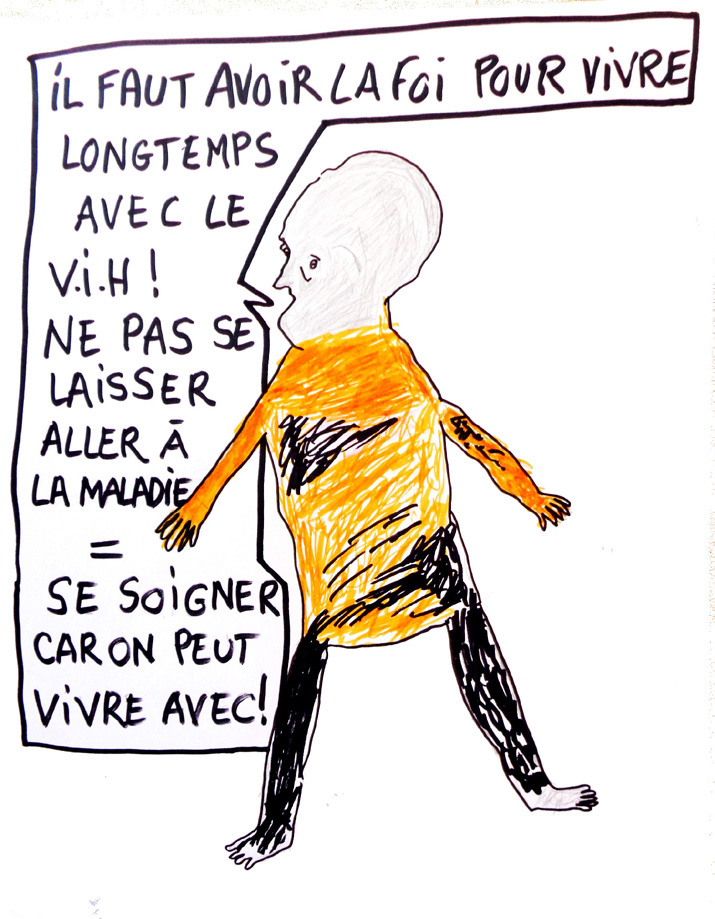 iL FAUT AVOiR LA FOi POUR ViVRE
LONGTEMPS
AVEC LE
V.i.H !
NE PAS SE
LAiSSER
ALLER Ā
LA MALADiE
=
SE SOiGNER
CAR ON PEUT
ViVRE AVEC!